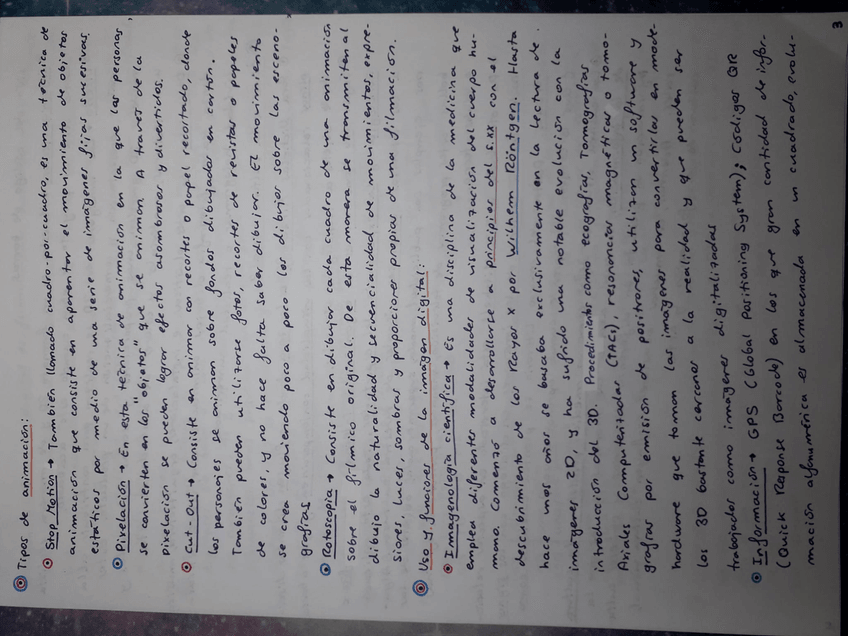 Tipos de animación:
Stop Motion → También llamado cuadro-por-cuadro, es una técnica de
animación que consiste en aparentar el movimiento de objetos
estáticos por medio de una serie de imágenes fijas sucesivas.
Pixelación → En esta técnica de animación en la que las personas
se convierten en los "objetos" que se animan. A traves de la
pixelación se pueden lograr efectos asombrosos y divertidos.
Cut-Out → Consiste en animar con recortes o papel recortado, donde
los personajes se animan sobre fondos dibujados en cartón.
También pueden utilizarse fotos, recortes de revistas o papeles
de colores, y no hace falta saber dibujar. El movimiento
se crea moviendo poco a poco los dibujos sobre las esceno-
grafías
Rotoscopia → Consiste en dibujar cada cuadro de una animación
sobre el fílmico original. De esta manera se transmiten al
dibujo la naturalidad y secuencialidad de movimientos, expre-
siones, luces, sombras y proporciones propias de una filmación.
Uso y funciones de la imagen digital:
Imagenología científica → Es una disciplina de la medicina que
emplea diferentes modalidades de visualización del cuerpo hu-
mano. Comenzó a desarrollarse a principios del s.XX con el
descubrimiento de los Rayos X por Wilhem Röntgen. Hasta
hace unos años se basaba exclusivamente en la lectura de
imágenes 2D, y ha sufrido una notable evolución con la
introducción del 3D. Procedimientos como ecografías, Tomografías
Axiales Computarizadas (TACs), resonancias magnéticas o tomo-
grafías por emisión de positrones, utilizan un software y
hardware que toman las imágenes para convertirlas en mode-
los 3D bastante cercanos a la realidad y que pueden ser
trabajados como imágenes digitalizadas
Información → GPS (Global Positioning System); Códigos QR
(Quick Response Barcode) en los que gran cantidad de infor-
mación alfanumérica es almacenada en un cuadrado, evolu-
3